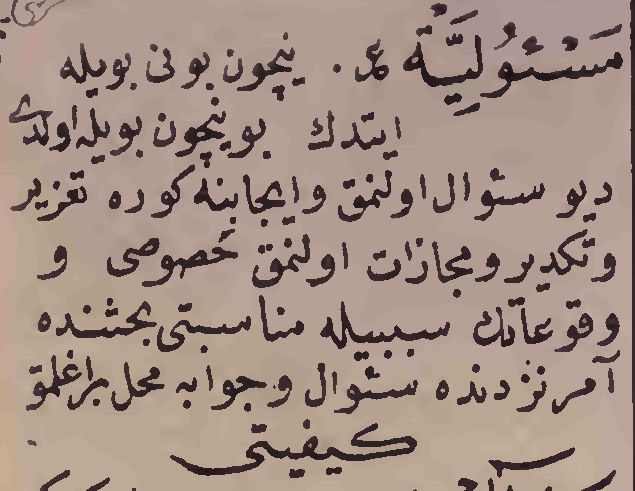 مَسْئُولِيَّة ع. نيچون بونى بويله
ايتدك بو نيچون بويله اولدى
ديو سئوال اولنمق وايجابنه كوره تعزير
وتكدير ومجازات اولنمق خصوصى و
وقوعاتك سببيله مناسبتى بحثنده
آمر نزدنده سئوال وجوابه محل براغلمق
كيفيتى